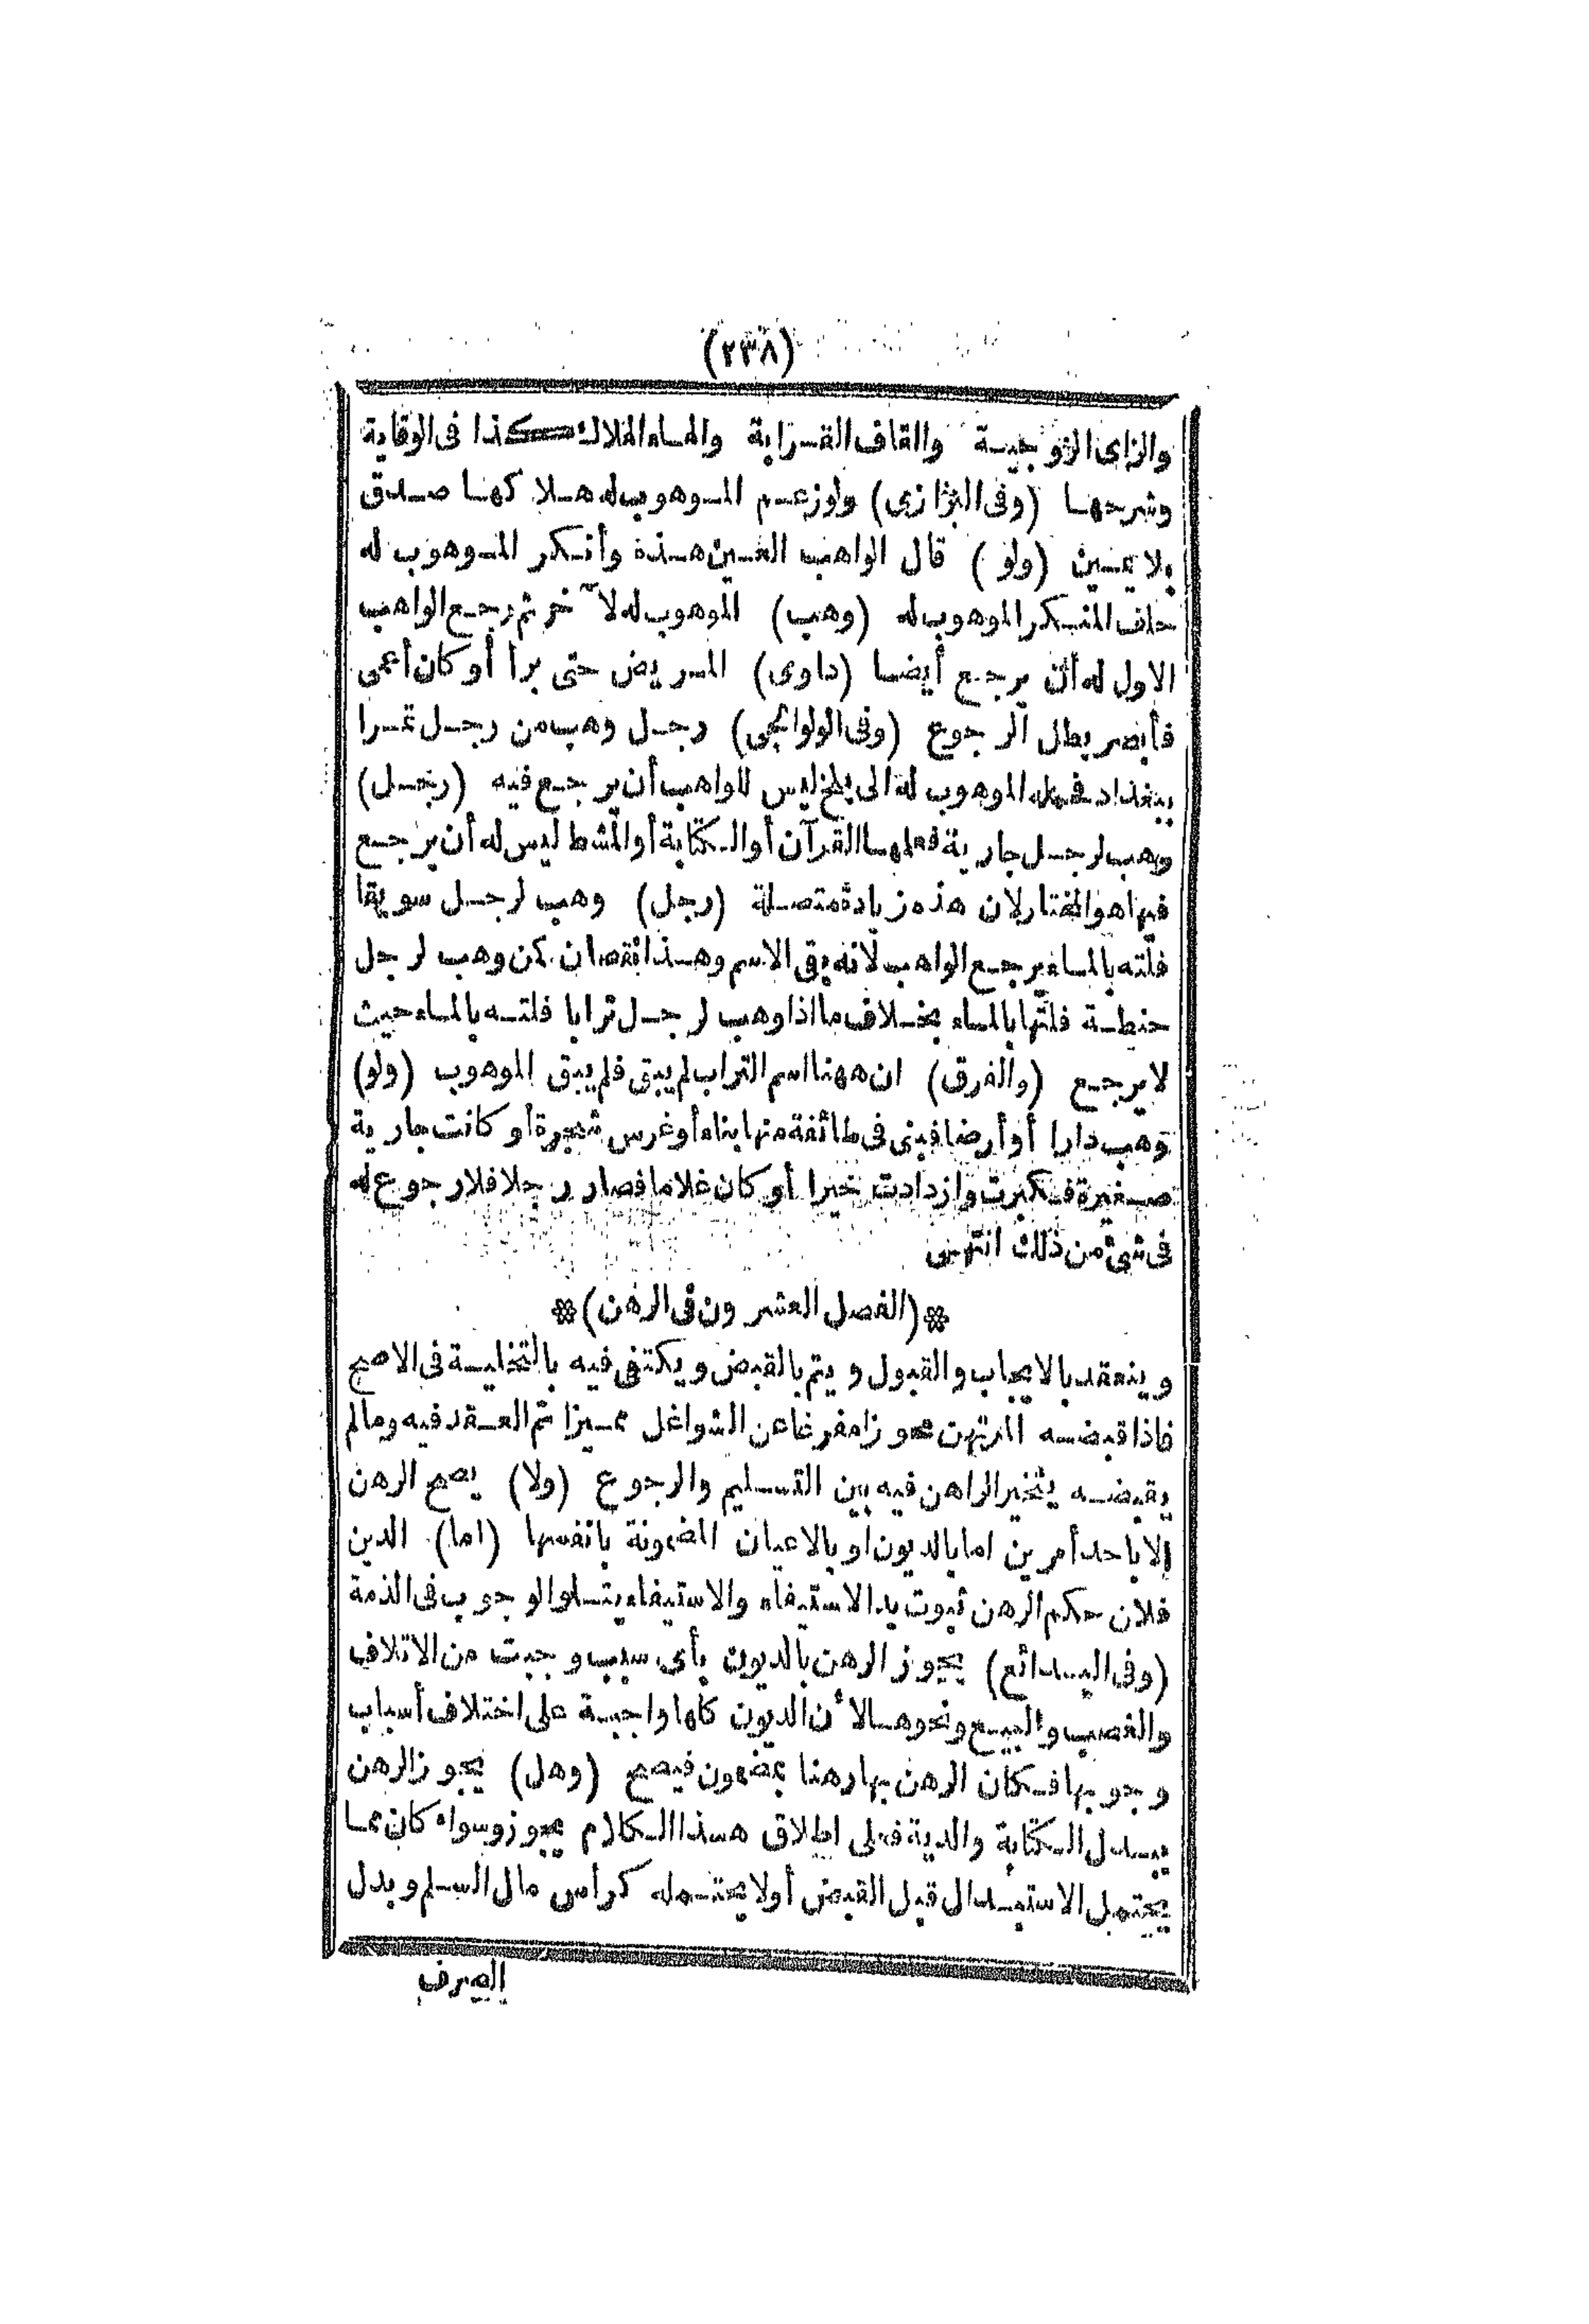 (٢٣٨)
والزاى الزوجية والقاف القرابة والهاء الهلاك كذا فى الوقاية
وشرحها (وفى البزازى) ولو زعم الموهوب له هلاكها صدق
بلا يمين (ولو) قال الواهب العين هذه وأنكر الموهوب له
حلف المنكر الموهوب له (وهب) الموهوب له لآخر ثم رجع الواهب
الاول له أن يرجع أيضا (داوى) المريض حتى برأ أو كان أعمى
فأبصر يطل الرجوع (وفى الولوالجى) رجل وهب من رجل تمرا
ببغداد فحمله الموهوب له الى بلخ ليس للواهب أن يرجع فيه (رجل)
وهب لرجل جارية فعلمها القرآن أو الكتابة أو المشط ليس له أن يرجع
فيها هو المختار لان هذه زيادة متصلة (رجل) وهب لرجل سويقا
فلته بالماء يرجع الواهب لانه بقى الاسم وهذا نقصان كمن وهب لرجل
حنطة فلتها بالماء بخلاف ما اذا وهب لرجل ترابا فلته بالماء حيث
لا يرجع (والفرق) ان ههنا اسم التراب لم يبق فلم يبق الموهوب (ولو)
وهب دارا أو أرضا فبنى فى طائفة منها بناء أو غرس شجرة أو كانت جارية
صغيرة فكبرت وازدادت خيرا أو كان غلاما فصار رجلا فلا رجوع له
فى شئ من ذلك انتهى
❊(الفصل العشرون فى الرهن)❊
وينعقد بالايجاب والقبول ويتم بالقبض ويكتفى فيه بالتخلية فى الاصح
فاذا قبضه المرتهن محوزا مفرغا عن الشواغل مميزا تم العقد فيه ومالم
يقبضه يتخير الراهن فيه بين التسليم والرجوع (ولا) يصح الرهن
الا باحد أمرين اما بالديون او بالاعيان المضمونة بانفسها (اما) الدين
فلان حكم الرهن ثبوت يد الاستيفاء والاستيفاء يتلو الوجوب فى الذمة
(وفى البدائع) يجوز الرهن بالديون بأى سبب وجبت من الاتلاف
والغصب والبيع ونحوها لأن الديون كلها واجبة على اختلاف أسباب
وجوبها فكان الرهن بها رهنا بمضمون فيصح (وهل) يجوز الرهن
ببدل الكتابة والدية فعلى اطلاق هذا الكلام يجوز وسواء كان مما
يحتمل الاستبدال قبل القبض أو لا يحتمله كرأس مال السلم وبدل
الصرف